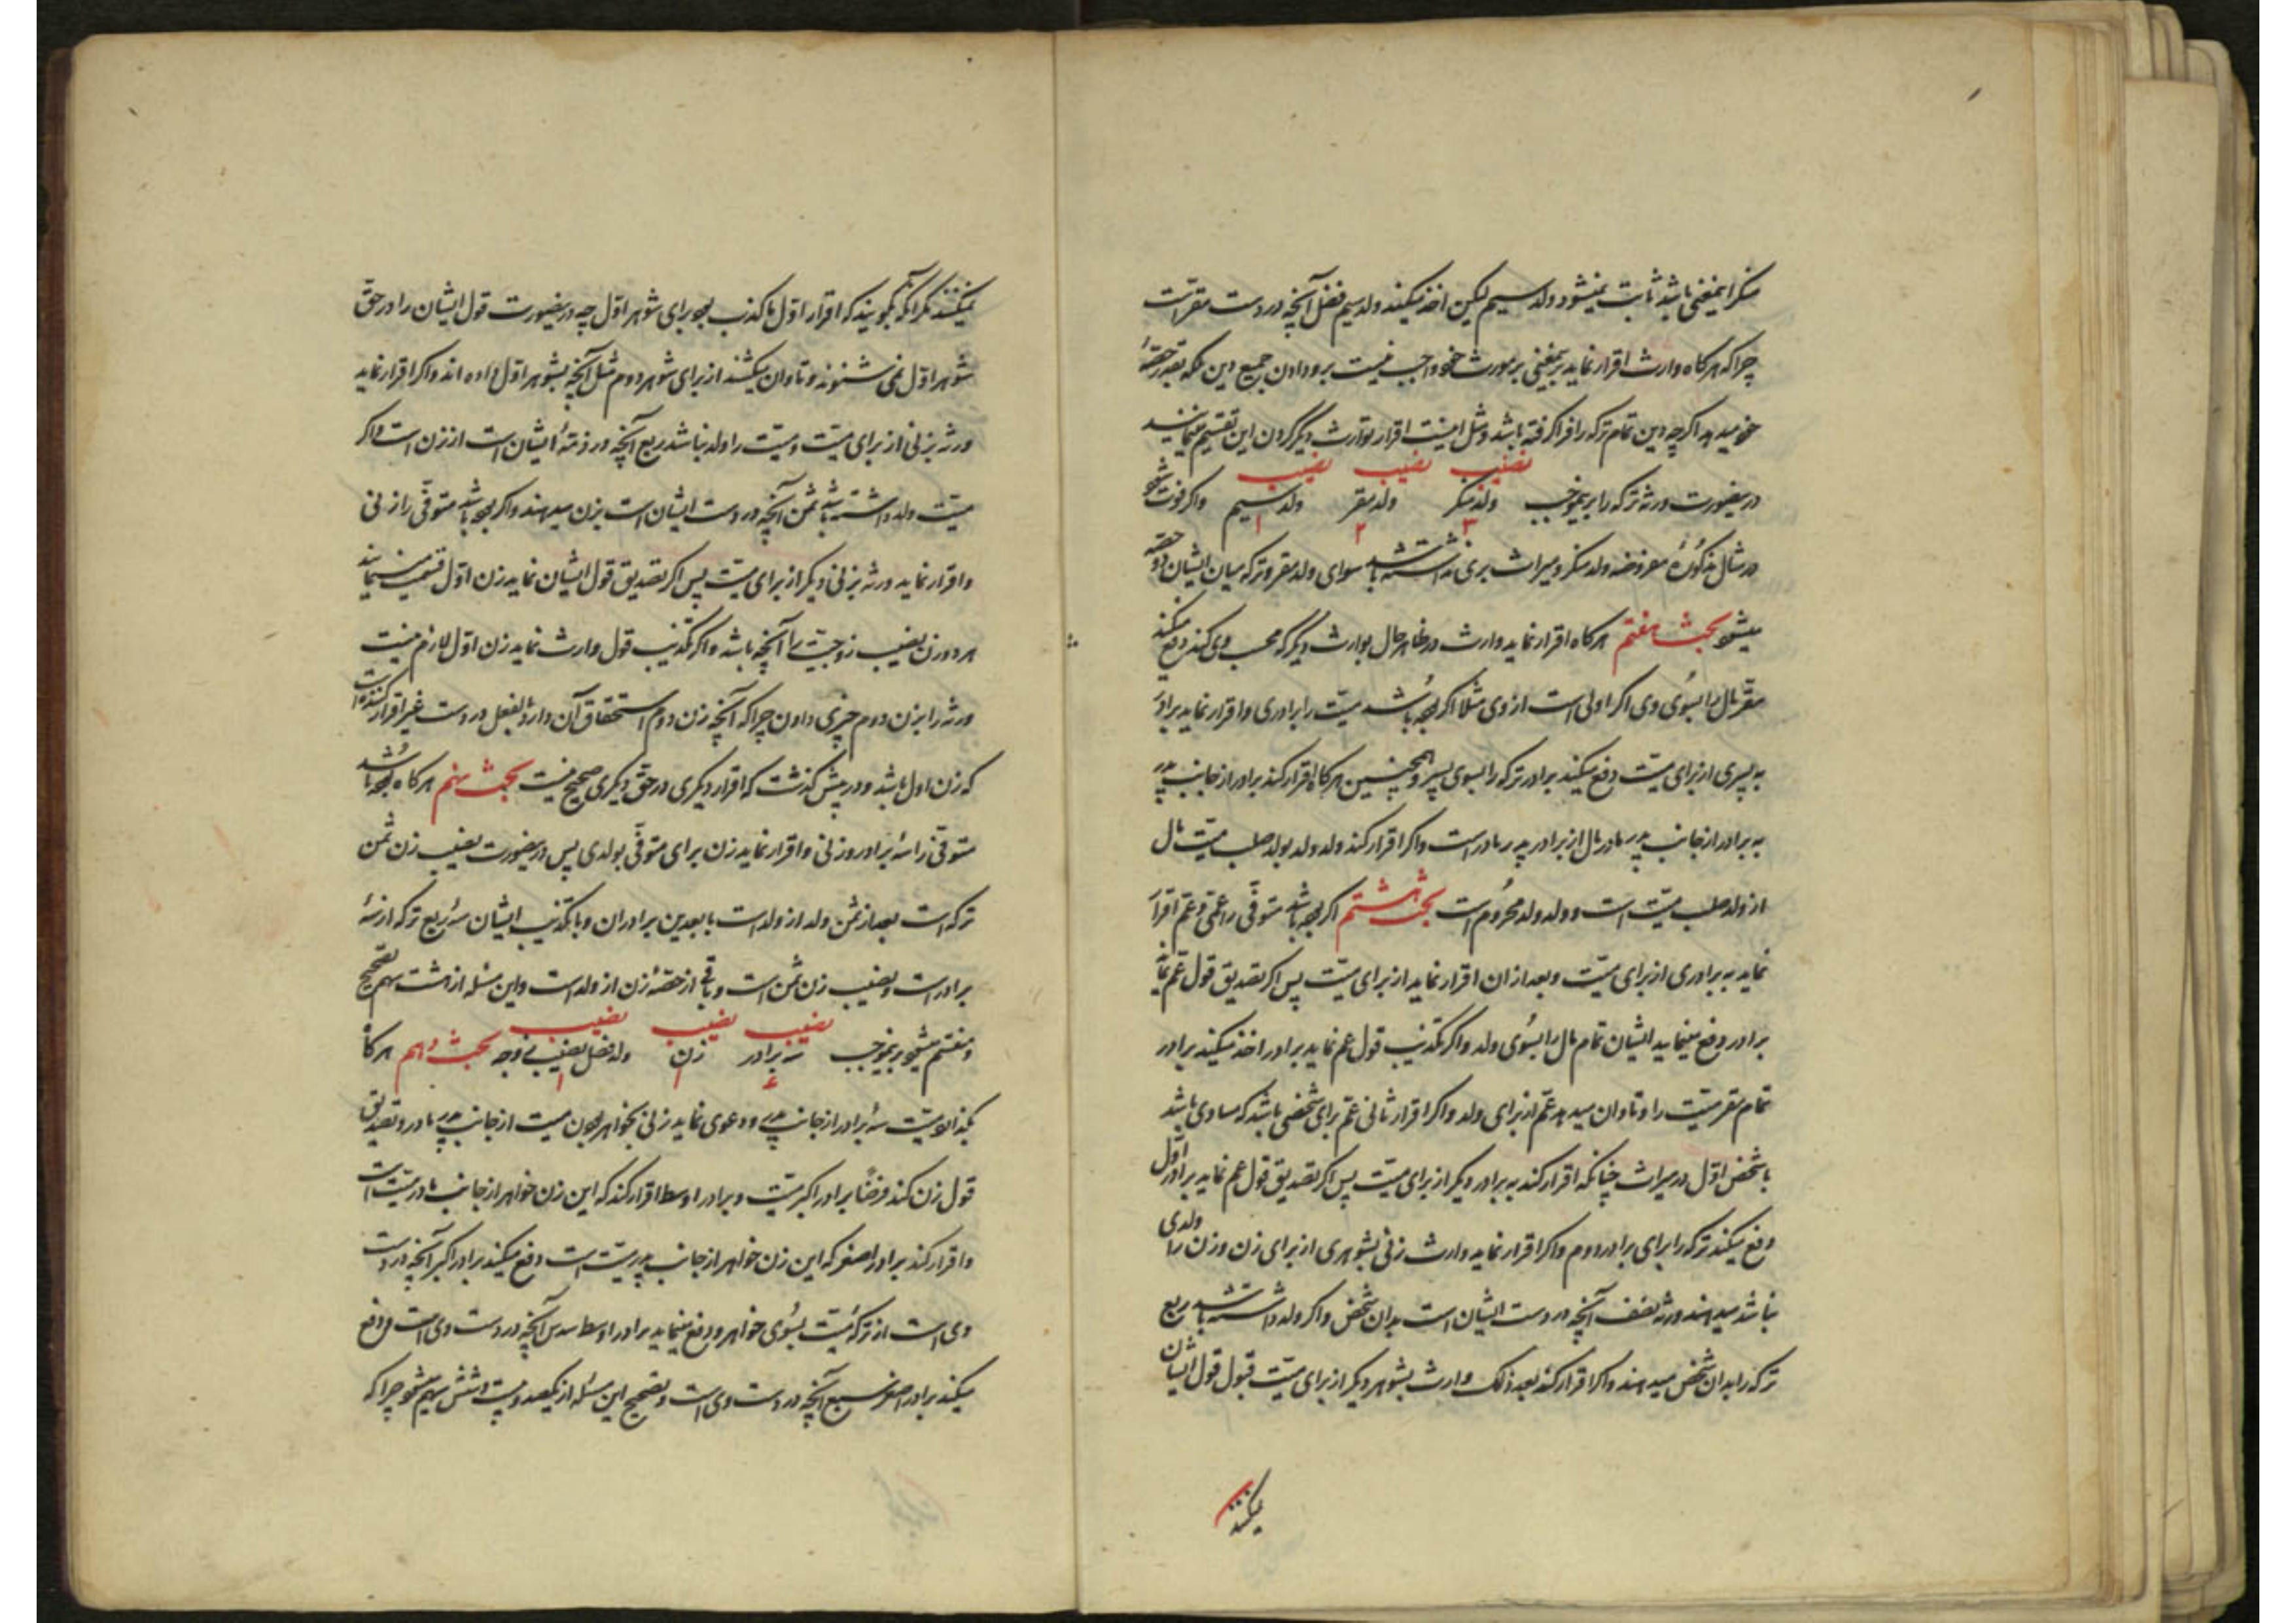 منکر اینمعنی باشد ثابت نمیشود ولد سیم لیکن اخذ میکند ولد سیم فضل آنچه در دست مقر است
چرا که هرگاه وارث اقرار نماید بدینی بر مورث خود واجب نیست بر و دادن جمیع دین بلکه بقدر حصّهٔ
خود میدهد اگرچه دین تمام ترکه را فرا گرفته باشد و مثل اینست اقرار بوارث دیگر کردن این تقسیم مینمایند
نصیب نصیب نصیب
درینصورت ورثه ترکه را برینموجب ولد منکر ولد مقر ولد سیم واگر فوت شود
۳ ۲ ۱
در مثال مذکورهٔ مفروضه ولد منکر و میراث بری نداشته باشد سوای ولد مقر و ترکه میان ایشان دو حصّه
میشود بحث هفتم هرگاه اقرار نماید وارث در ظاهر حال بوارث دیگر که محجب وی کند دفع میکند
مقرّ مال را بسوی وی اگر اولی است از وی مثلا اگر بوده باشد میّت را برادری و اقرار نماید برادر
به پسری از برای میّت دفع میکند برادر ترکه را بسوی پسر و همچنین هرگاه اقرار کند برادر از جانب پدر
به برادر از جانب پدر مادر مال از برادر پدر مادر است واگر اقرار کند ولد ولد بولد صلب میّت مال
از ولد صلب میّت است و ولد ولد محروم است بحث هشتم اگر بوده باشد متوفّی را عمّی و عمّ اقرار
نماید به برادری از برای میّت و بعد از ان اقرار نماید از برای میّت پس اگر تصدیق قول عمّ نماید
برادر دفع مینماید ایشان تمام مال را بسوی ولد واگر تکذیب قول عم نماید برادر اخذ میکند برادر
تمام مقر میّت را و تاوان میدهد عمّ از برای ولد واگر اقرار ثانی عمّ برای شخصی باشد که مساوی باشد
با شخص اوّل در میراث چنانکه اقرار کند به برادر دیگر از برای میّت پس اگر تصدیق قول عم نماید برادر اوّل
دفع میکند ترکه را برای برادر دوم واگر اقرار نماید وارث زنی بشوهری از برای زن و زن را ولدی
نباشد میدهند ورثه نصف آنچه در دست ایشان است بدان شخص واگر ولد داشته باشد ربع
ترکه را بدان شخص میدهند واگر اقرار کند بعد ذلک وارث بشوهر دیگر از برای میّت قبول قول ایشان
نمیکنند
نمیکنند مگر آنکه بگویند که اقرار اوّل ما کذب بود برای شوهر اوّل چه درینصورت قول ایشان را در حقّ
شوهر اوّل نمی شنوند و تاوان میکشند از برای شوهر دوم مثل آنچه بشوهر اوّل داده اند واگر اقرار نماید
ورثه بزنی از برای میّت و میّت را ولد نباشد ربع آنچه در ذمّهٔ ایشان است از زن است واگر
میّت ولد داشته باشد ثمن آنچه در دست ایشان است بزن میدهند واگر بوده باشد متوفّی را زنی
و اقرار نماید ورثه بزنی دیگر از برای میّت پس اگر تصدیق قول ایشان نماید زن اوّل قسمت مینمایند
هر دو زن نصیب زوجیّت را آنچه باشد واگر تکذیب قول وارث نماید زن اوّل لازم نیست
ورثه را بزن دوم چیزی دادن چرا که آنچه زن دوم استحقاق آن دارد بالفعل در دست غیر اقرار کننده است
که زن اول باشد و در پیش گذشت که اقرار دیگری در حقّ دیگری صحیح نیست بحث نهم هرگاه بوده باشد
متوفّی را سه برادر و زنی و اقرار نماید زن برای متوفّی بولدی پس درینصورت نصیب زن ثمن
ترکه است بعد از ثمن ولد از ولد است با تصدیق برادران و با تکذیب ایشان سه ربع ترکه از سه
برادر است و نصیب زن ثمن است و باقی از حصّهٔ زن از ولد است و این مسئله از هشت سهم تصحیح
نصیب نصیب نصیب
و منقسم میشود برینموجب سه برادر زن ولد فضل نصیب زوجه بحث دهم هرگاه
۶ ۱ ۱
بگذارد میّت سه برادر از جانب پدر و دعوی نماید زنی بخواهر بودن میت از جانب پدر مادر و تصدیق
قول زن کند فرضاً برادر اکبر میّت و برادر اوسط اقرار کند که این زن خواهر از جانب مادر میّت است
و اقرار کند برادر اصغر که این زن خواهر از جانب پدر میّت است دفع میکند برادر اکبر آنچه در دست
وی است از ترکهٔ میّت بسوی خواهر و دفع مینماید برادر اوسط سدس آنچه در دست وی است و دفع
میکند برادر اصغر سبع آنچه در دست وی است و تصحیح این مسئله از یکصد و بیست و شش سهم میشود چرا که